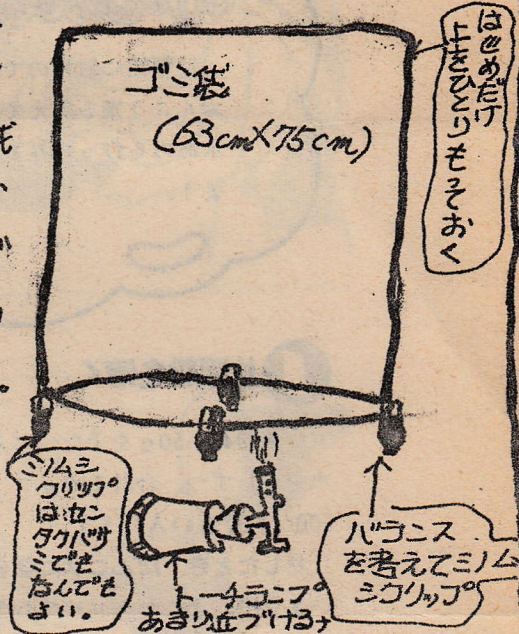 ゴミ袋
(63cm×75cm)
はじめだけ
上をひとりもっておく
ミノムシ
クリップ
はセン
タクバサ
ミでも
なんでも
よい。
トーチランプ
あまり近づけるナ
バランス
を考えてミノム
シクリップ